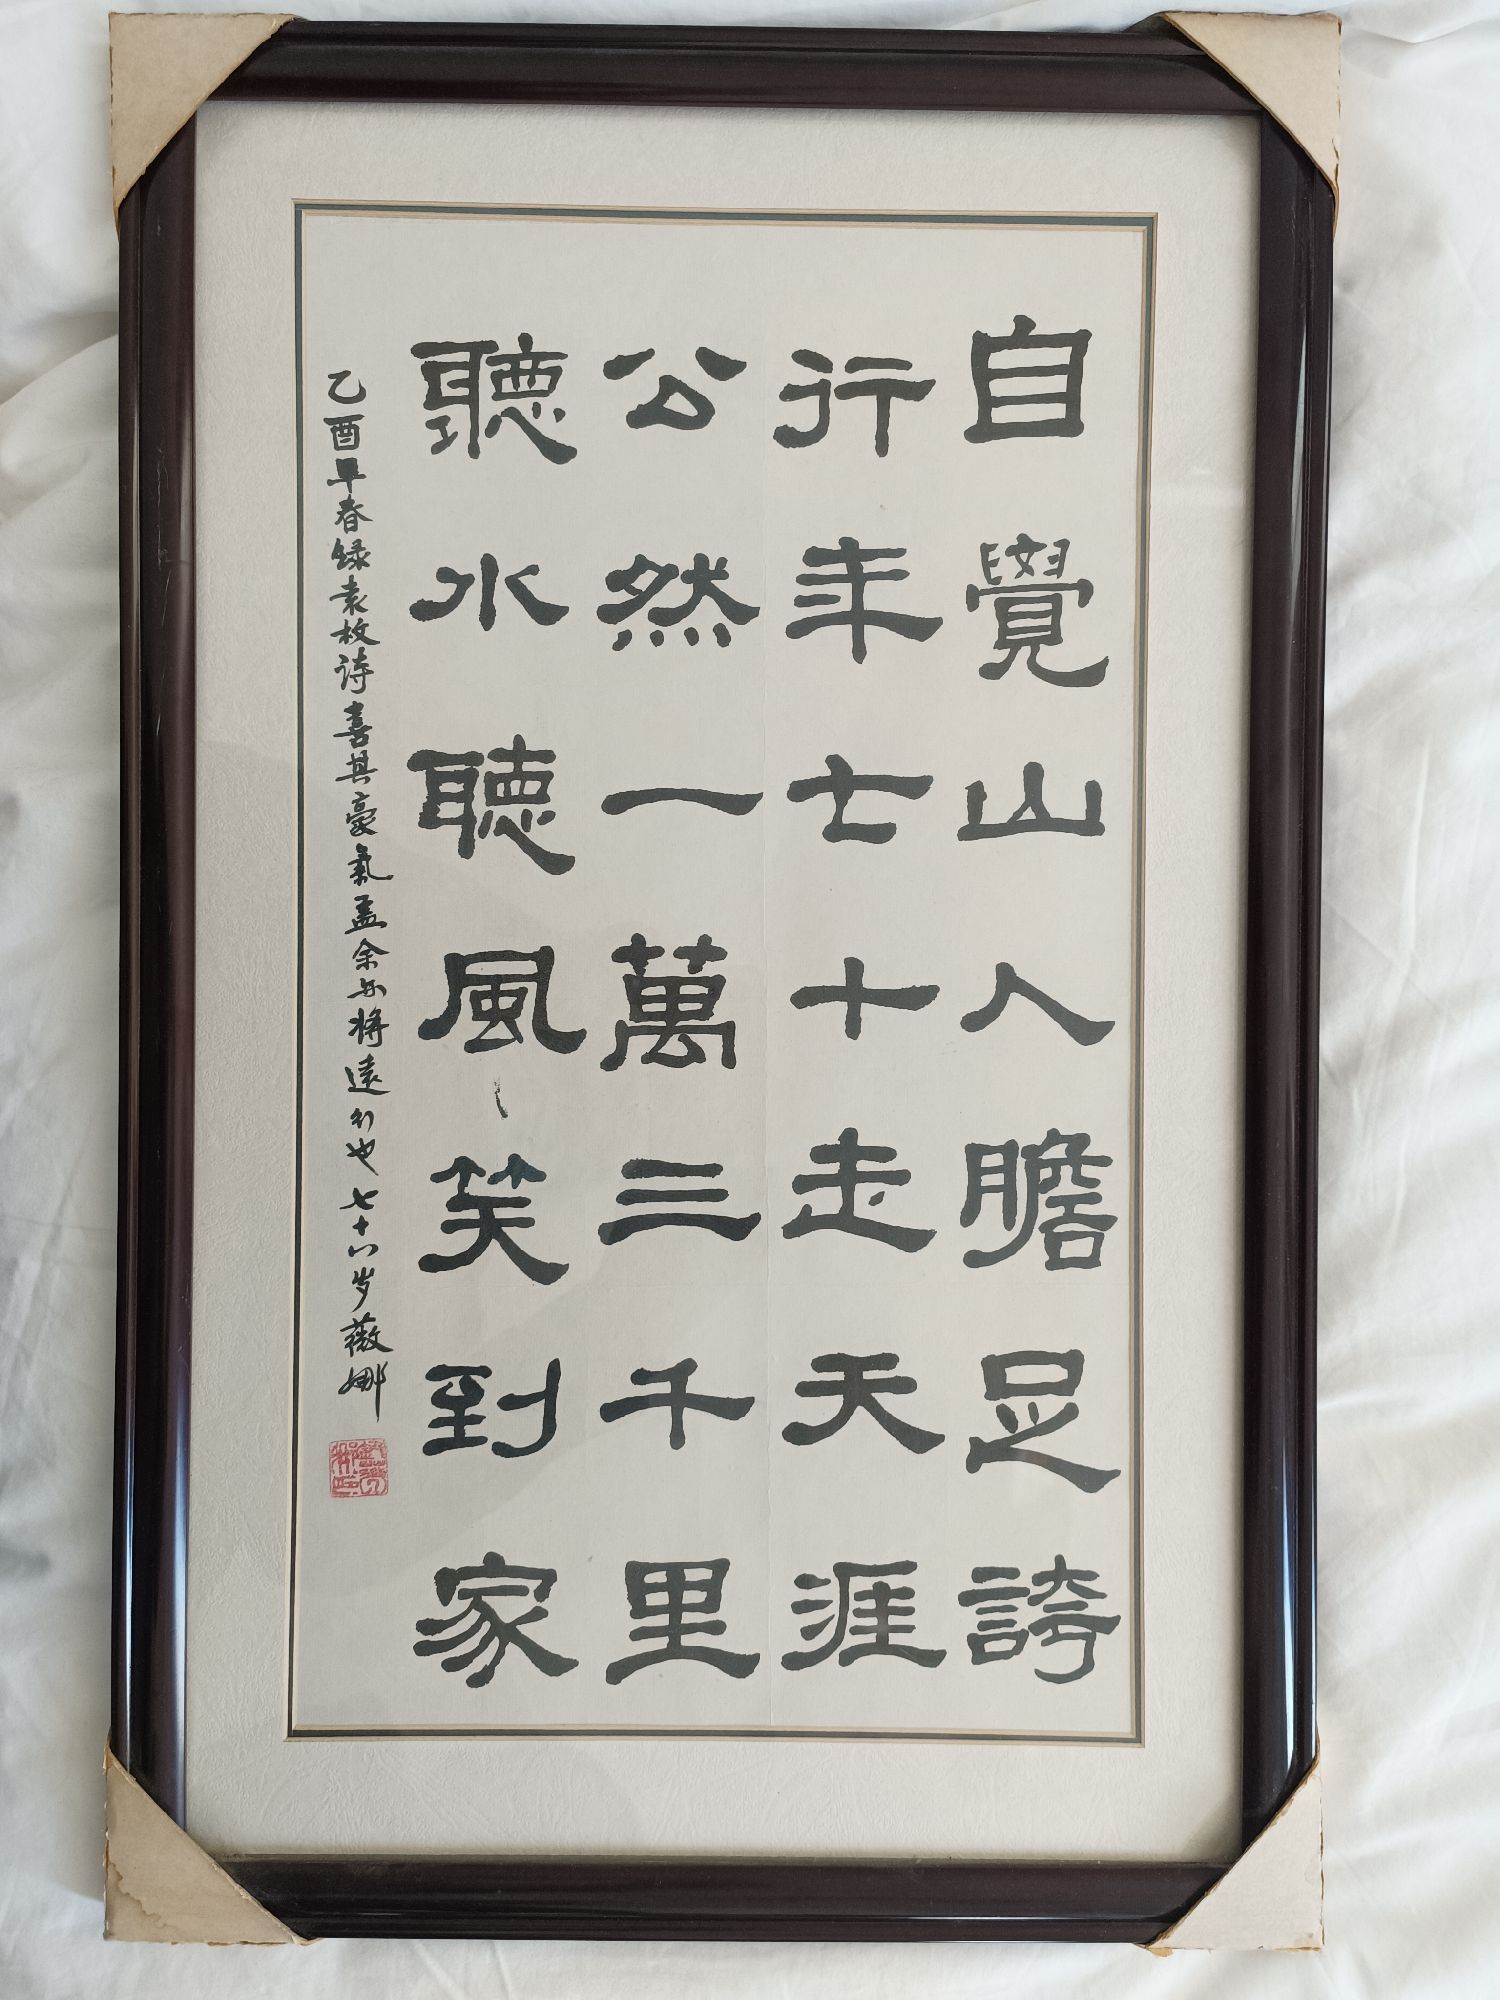 自覺山人膽足誇
行年七十走天涯
公然一萬三千里
聽水聽風笑到家
乙酉早春録袁枚诗喜其豪氣盖余亦将遠行也七十八岁薇娜